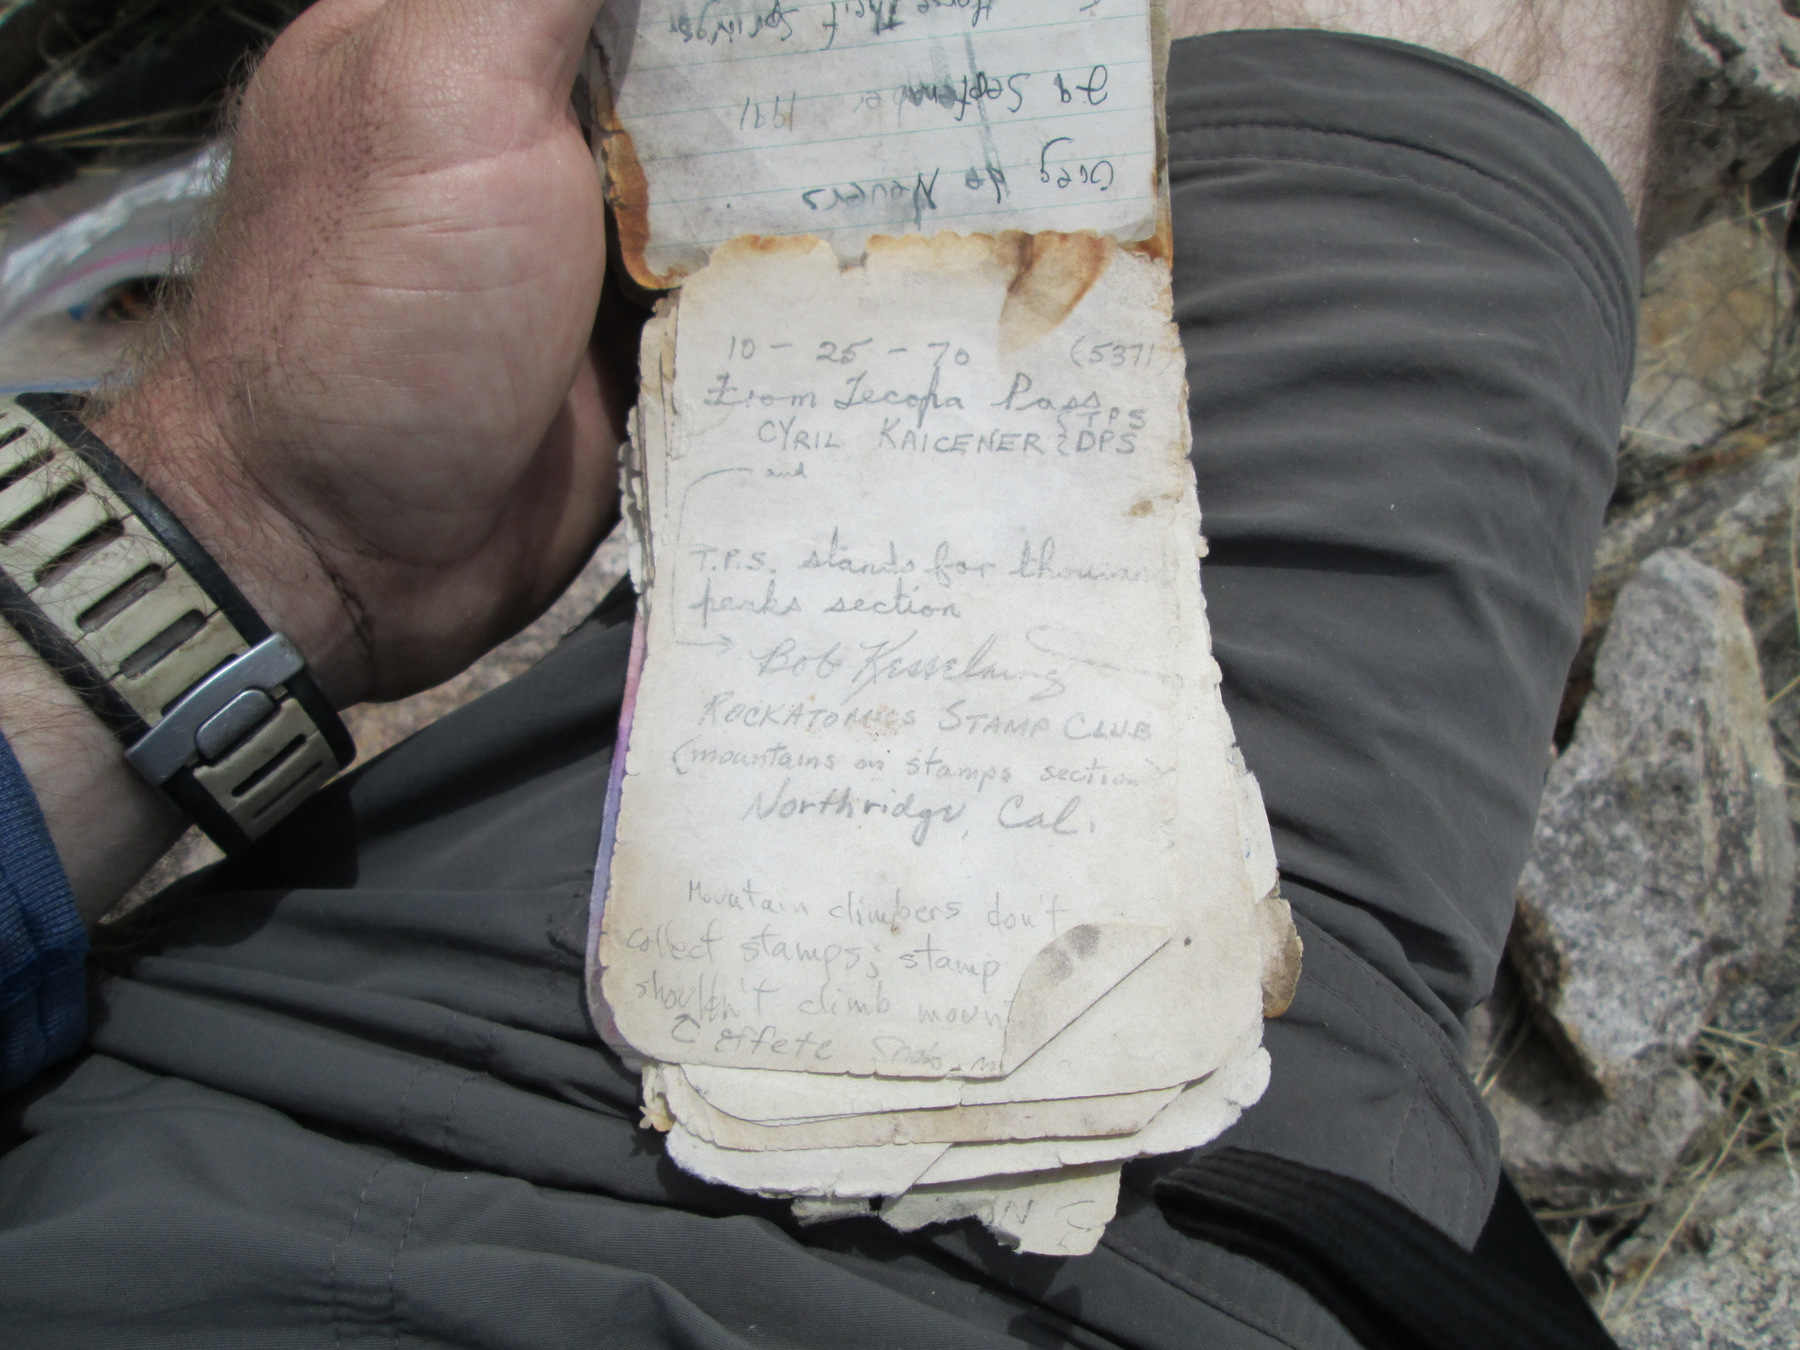 Horse Thief Springs
29 September 1991
Greg de Nevers
10 - 25 - 70 (5371
From Tecopa Pass
CYRIL KAICENER { TPS
{ DPS
and
T.P.S. stands for
peaks section
Bob
ROCKATOMICS STAMP CLUB
(mountains on stamps section
Northridge, Cal.
Mountain climbers don't
collect stamps; stamp
shouldn't climb moun
effete